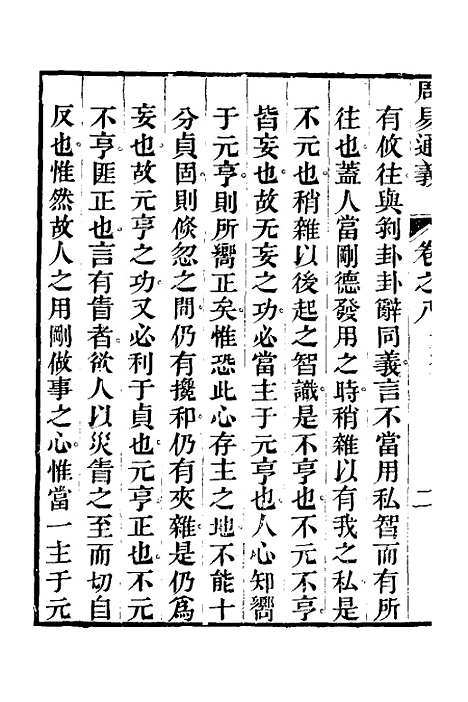 周易通義 卷之八 二
有攸往與剝卦卦辭同義言不當用私智而有所
往也蓋人當剛德發用之時稍雜以有我之私是
不元也稍雜以後起之智識是不亨也不元不亨
皆妄也故无妄之功必當主于元亨也人心知嚮
于元亨則所嚮正矣惟恐此心存主之地不能十
分貞固則倏忽之間仍有攙和仍有夾雜是仍爲
妄也故元亨之功又必利于貞也元亨正也不元
不亨匪正也言有眚者欲人以災眚之至而切自
反也惟然故人之用剛做事之心惟當一主于元